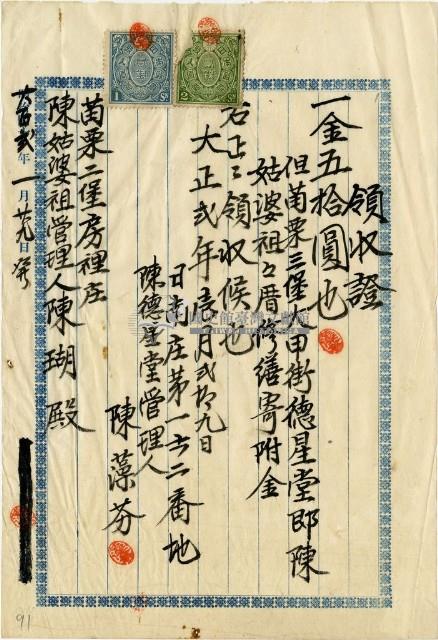 領收證
一金五拾圓也
但苗栗三堡大甲街德星堂即陳
姑婆祖之厝修繕寄附金
右正ニ領收候也
大正貳年壹月貳拾九日
日南庄第一六二番地
陳德星堂管理人
陳藻芬
苗栗二堡房裡庄
陳姑婆祖管理人陳瑚殿
年一月廿九日
91